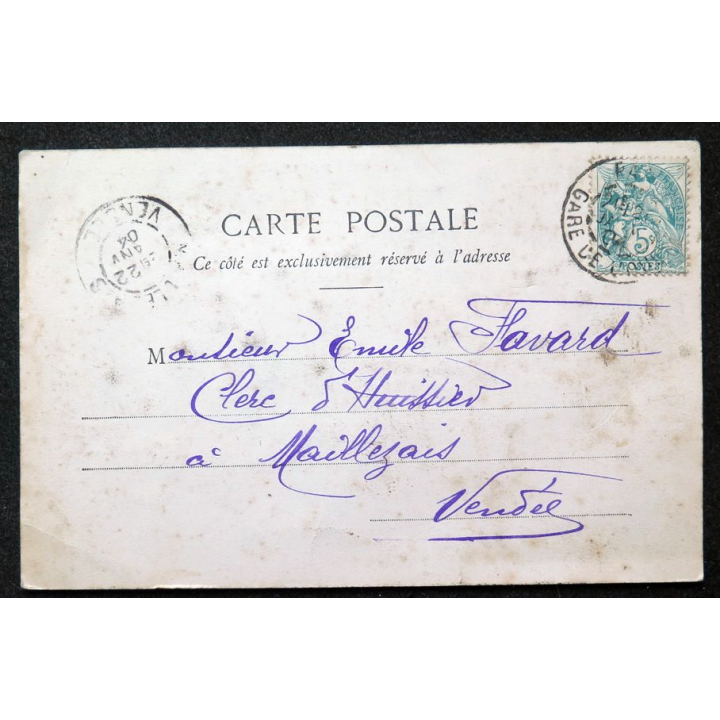 CARTE POSTALE
Ce côté est exclusivement réservé à l'adresse
Monsieur Emile Favard
Clerc d'Huissier
à Maillezais
Vendée
GARE
5
POSTES
VENDEE
22
04